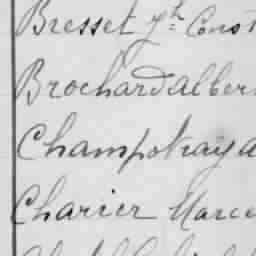 Bresset Jh Const
Brochard Alber
Champotray a
Charier Marce